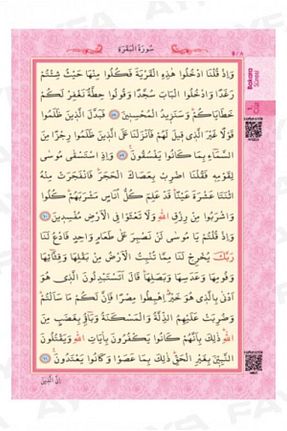 سُورَةُ الْبَقَرَةِ
٨
Bakara
1
Cüz
وَاِذْ قُلْنَا ادْخُلُوا هٰذِهِ الْقَرْيَةَ فَكُلُوا مِنْهَا حَيْثُ شِئْتُمْ
رَغَدًا وَادْخُلُوا الْبَابَ سُجَّدًا وَقُولُوا حِطَّةٌ نَغْفِرْ لَكُمْ
خَطَايَاكُمْ وَسَنَزِيدُ الْمُحْسِنِينَ ۝ فَبَدَّلَ الَّذِينَ ظَلَمُوا
قَوْلًا غَيْرَ الَّذِى قِيلَ لَهُمْ فَاَنْزَلْنَا عَلَى الَّذِينَ ظَلَمُوا رِجْزًا مِنَ
السَّمَاءِ بِمَا كَانُوا يَفْسُقُونَ ۝ وَاِذِ اسْتَسْقٰى مُوسٰى
لِقَوْمِهِ فَقُلْنَا اضْرِبْ بِعَصَاكَ الْحَجَرَ فَانْفَجَرَتْ مِنْهُ
اثْنَتَا عَشْرَةَ عَيْنًا قَدْ عَلِمَ كُلُّ اُنَاسٍ مَشْرَبَهُمْ كُلُوا
وَاشْرَبُوا مِنْ رِزْقِ اللهِ وَلَا تَعْثَوْا فِى الْاَرْضِ مُفْسِدِينَ ۝
وَاِذْ قُلْتُمْ يَا مُوسٰى لَنْ نَصْبِرَ عَلٰى طَعَامٍ وَاحِدٍ فَادْعُ لَنَا
رَبَّكَ يُخْرِجْ لَنَا مِمَّا تُنْبِتُ الْاَرْضُ مِنْ بَقْلِهَا وَقِثَّائِهَا
وَفُومِهَا وَعَدَسِهَا وَبَصَلِهَا قَالَ اَتَسْتَبْدِلُونَ الَّذِى هُوَ
اَدْنٰى بِالَّذِى هُوَ خَيْرٌ اِهْبِطُوا مِصْرًا فَاِنَّ لَكُمْ مَا سَاَلْتُمْ
وَضُرِبَتْ عَلَيْهِمُ الذِّلَّةُ وَالْمَسْكَنَةُ وَبَاؤُ بِغَضَبٍ مِنَ
اللهِ ذٰلِكَ بِاَنَّهُمْ كَانُوا يَكْفُرُونَ بِاٰيَاتِ اللهِ وَيَقْتُلُونَ
النَّبِيّنَ بِغَيْرِ الْحَقِّ ذٰلِكَ بِمَا عَصَوْا وَكَانُوا يَعْتَدُونَ ۝
اِنَّ الَّذِينَ